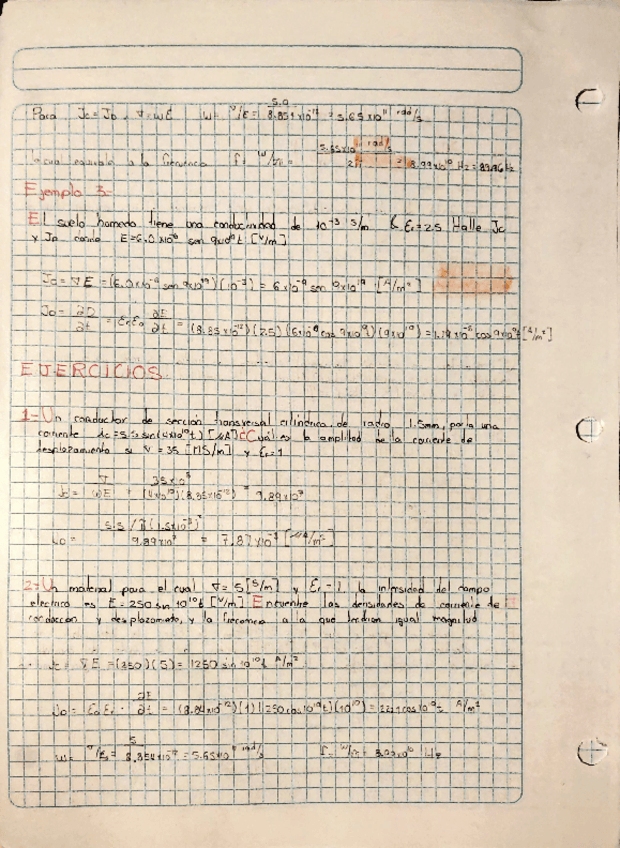 Para Jc = JD, σ = ωE ω = σ/E = 5.0 / 8.854x10⁻¹² = 5.65x10¹¹ rad/s
la cual equivale a la frecuencia f = ω/2π = 5.65x10¹¹ rad/s / 2π = 8.99x10¹⁰ Hz = 89.96
Ejemplo 3.-
El suelo humedo tiene una conductividad de 10⁻³ S/m & Er=2.5 Halle Jc
y JD donde E=6.0x10⁻⁶ sen 9x10⁹t [V/m]
= σE = (6.0x10⁻⁶ sen 9x10⁹)(10⁻³) = 6x10⁻⁹ sen 9x10⁹ [A/m²]
JD = ∂D/∂t = ErEo ∂E/∂t = (8.85x10⁻¹²)(2.5)(6x10⁻⁶ cos 9x10⁹t)(9x10⁹) = cos 9x10⁹t [A/m²]
EJERCICIOS
1=Un conductor de sección transversal cilíndrica, de radio 1.5mm, porta una
corriente ic=5.5 sin(4x10¹⁰t) [µA] ¿Cuál es la amplitud de la corriente de
desplazamiento si σ = 35 [MS/m] y Er=1
σ / ωE = 35x10⁶ / (4x10¹⁰)(8.85x10⁻¹²) = 9.89x10⁷
JD = 5.5 / π(1.5x10⁻³)² / 9.89x10⁷ = 7.87x10⁻³ [µA/m²]
2=Un material para el cual σ = 5 [S/m] y Er = 1 la intensidad del campo
electrico es E = 250 sin 10¹⁰t [V/m] Encuentre las densidades de corriente de
conducción y desplazamiento, y la frecuencia a la que tendrian igual magnitud
Jc = σE = (250)(5) = 1250 sin 10¹⁰t A/m²
JD = EoEr · ∂E/∂t = (8.84x10⁻¹²)(1)(250 cos 10¹⁰t)(10¹⁰) = cos 10¹⁰t A/m²
ω = σ/E = 5 / 8.854x10⁻¹² = 5.65x10¹¹ rad/s f = ω/2π =